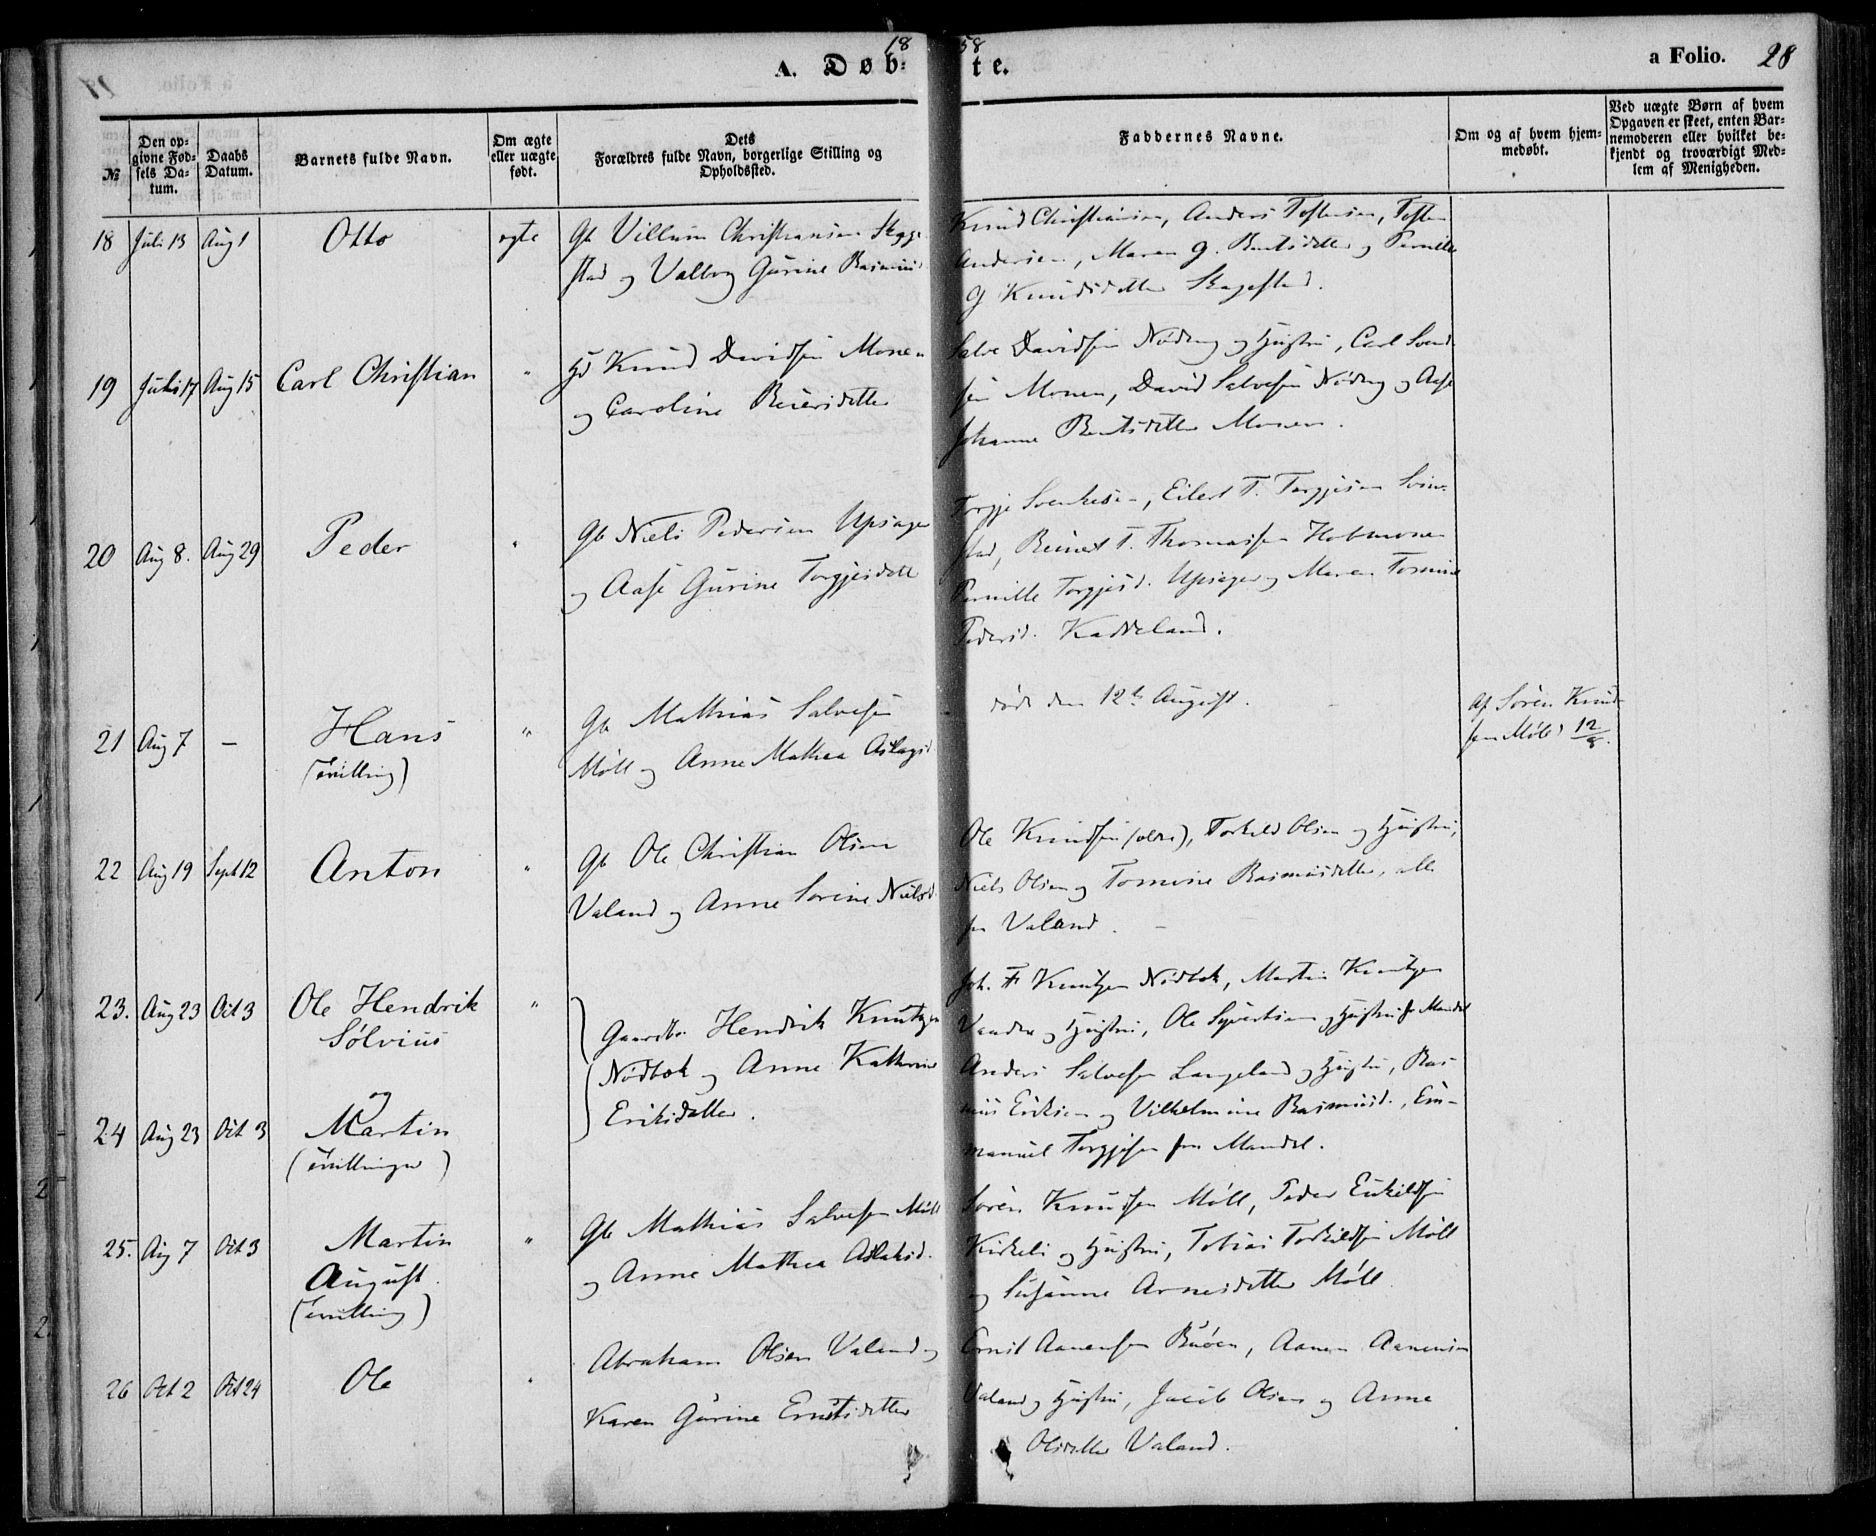 18 58
A. Døb- te.
a Folio. 28
№
Den opgivne Fødsels Datum.
Daabs Datum.
Barnets fulde Navn.
Om ægte eller uægte født.
Dets Forældres fulde Navn, borgerlige Stilling og Opholdssted.
Faddernes Navne.
Om og af hvem hjemmedøbt.
Ved uægte Børn af hvem Opgaven er skeet, enten Barnemoderen eller hvilket bekjendt og troværdigt Medlem af Menigheden.
18 Juli 13 Aug 1 Otto ægte Gb Villum Christiansen
stad og Valborg Gurine
Knud Christiansen, Anders Tostensen, Tosten
Andersen, Maren G. Berntsdatter og Pernille
G Knudsdatter Skagestad.
19 Juli 17 Aug 15 Carl Christian " Hd Knud Davidsen Monen
og Caroline Reiersdatter
Salve Davidsen Nøding og Hustru, Carl Svend-
sen Monen, David Salvesen Nøding og Aase
Johanne Berntsdatter Monen.
20 Aug 8. Aug 29 Peder " Gb Niels Pedersen Upsager
og Aase Gurine Torgjesdatt
Torgje Svenkesen, Eilert T. Torgjesen Svin-
stad, Reinert T. Thomassen Holmmonen
Pernille Torgjesd. Upsager og Maren Tomine
Pedersd. Kaddeland.
21 Aug 7 – Hans " Gb Mathias Salvesen
(tvilling) Møll og Anne Mathea Aslagsd
døde den 12te August.
Af Søren Knud-
sen Møll 12/8.
22 Aug 19 Sept 12 Anton " Gb Ole Christian Olsen
Valand og Anne Sorine Nielsd
Ole Knudsen (eldre), Torkild Olsen og Hustru,
Niels Olsen og Tomine Rasmusdatter, alle
fra Valand.
23. Aug 23 Oct 3 Ole Hendrik "
Sølvius
og
Gaardbr Hendrik Knutzen
Nødbok og Anne Kathrine
Eriksdatter.
24 Aug 23 Oct 3 Martin
(tvillinger)
Joh. F Knutzen Nødbok, Martin Knutzen
og Hustru, Ole Syvertsen og Hustru fr Mandal
Anders Salvesen Langeland og Hustru, Ras-
mus Eriksen og Vilhelmine Rasmusd., Em-
manuel Torgjesen fra Mandal.
25. Aug 7 Oct 3 Martin " Gb Mathias Salvesen Møll
August. og Anne Mathea Aslaksd.
(tvilling)
Søren Knudsen Møll, Peder Eskildsen
Kirkeli og Hustru, Tobias Torkildsen Møll
og Susanne Arnesdatter Møll
26 Oct 2 Oct 24 Ole " Abraham Olsen Valand og
Karen Gurine Ernstsdatter
Ernst Aanensen Buøen, Aanen Aanensen
Valand og Hustru, Jacob Olsen og Anne
Olsdatter Valand.